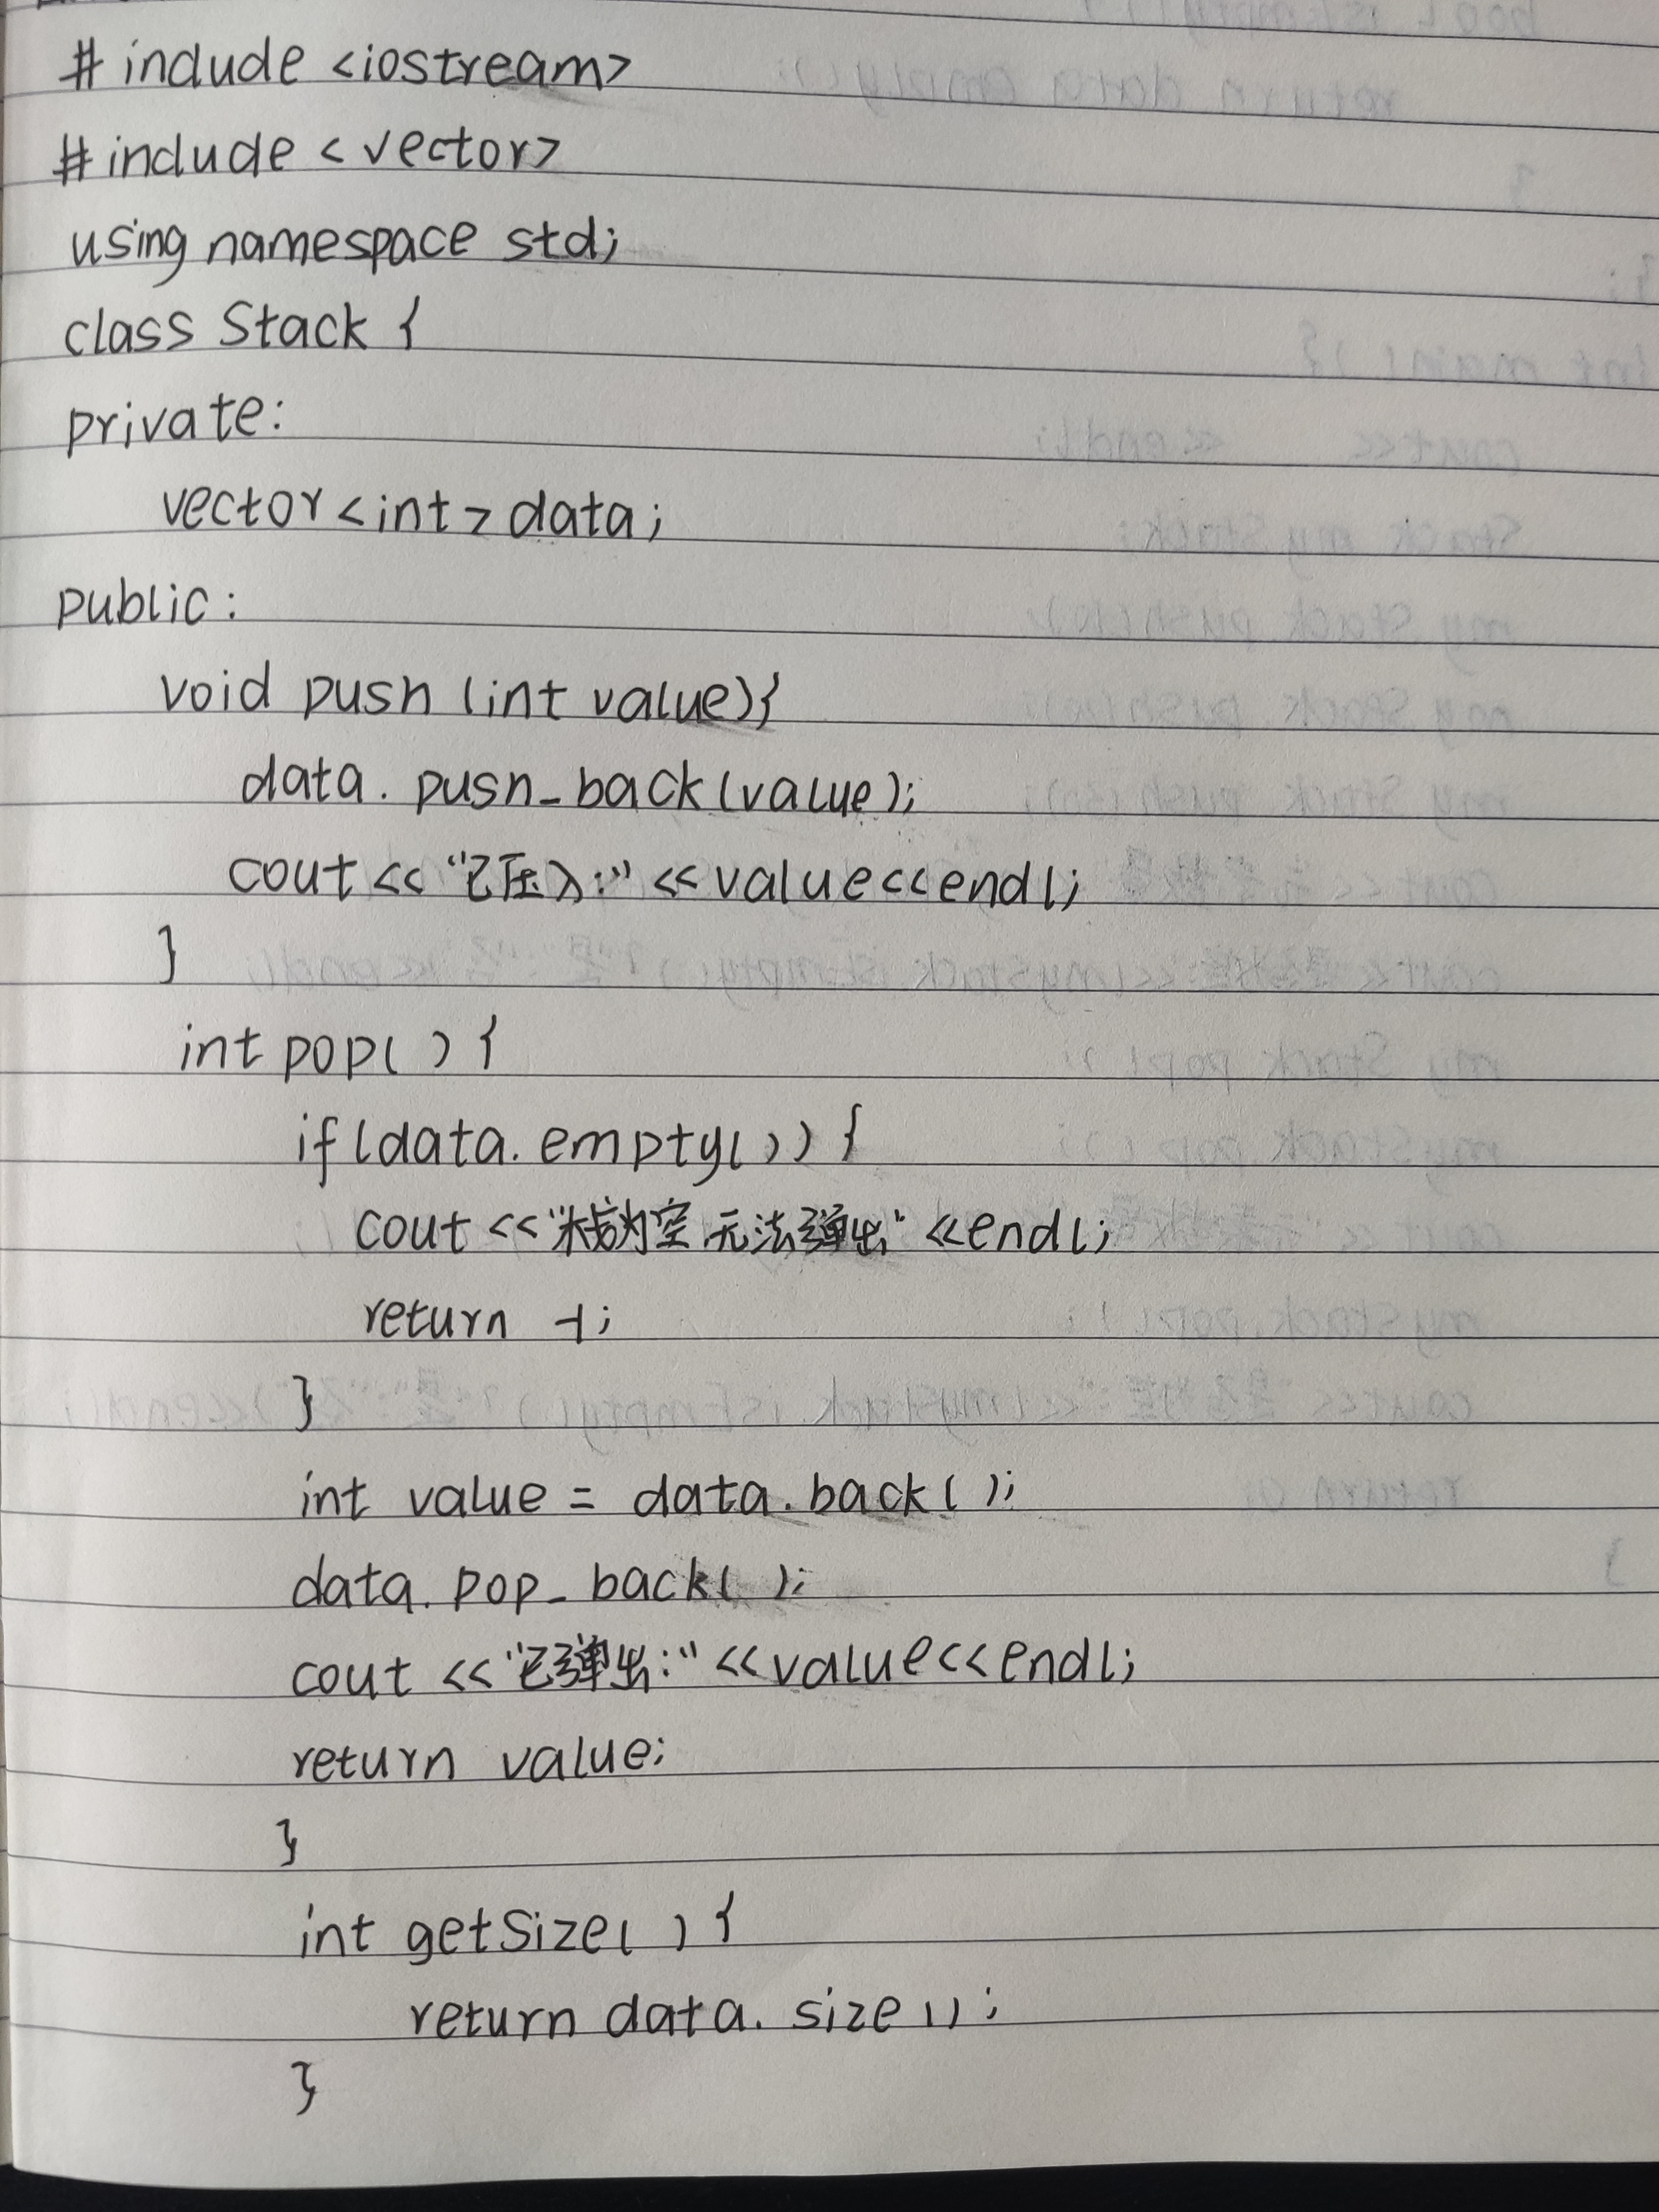 # include <iostream>
# include < vector>
using namespace std;
class Stack {
private:
vector <int> data;
public:
void push (int value){
data. push_back (value);
cout << "已压入:" << value<<endl;
}
int pop( ) {
if (data. empty( )) {
cout << "栈为空 无法弹出" <<endl;
return -1;
}
int value = data. back ( );
data. pop_ back( );
cout << "已弹出:" <<value<<endl;
return value;
}
int getSize( ) {
return data. size ();
}